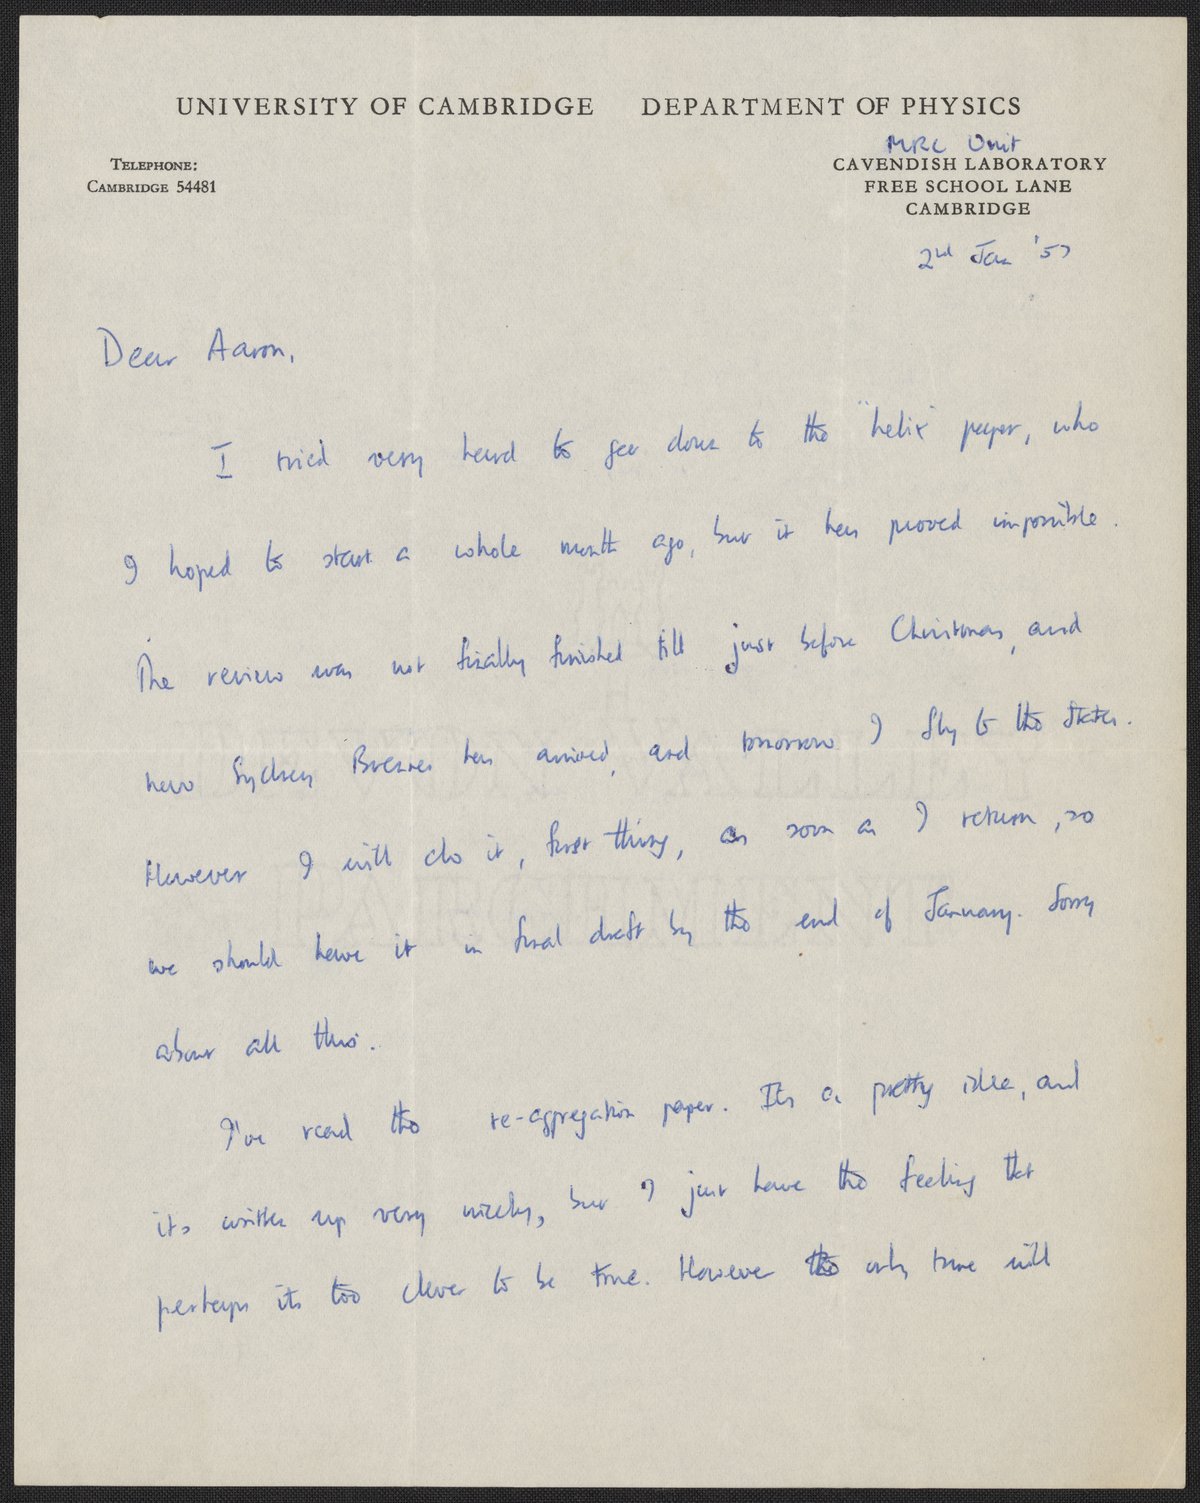 UNIVERSITY OF CAMBRIDGE DEPARTMENT OF PHYSICS
MRC Unit
TELEPHONE:
CAMBRIDGE 54481
CAVENDISH LABORATORY
FREE SCHOOL LANE
CAMBRIDGE
2nd Jan '57
Dear Aaron,
I tried very hard to get down to the "helix" paper, who
I hoped to start a whole month ago, but it has proved impossible.
The review was not finally finished till just before Christmas, and
now Sydney Brenner has arrived, and tomorrow I fly to the States.
However I will do it, first thing, as soon as I return, so
we should have it in final draft by the end of January. Sorry
about all this.
I've read the re-aggregation paper. Its a pretty idea, and
its written up very nicely, but I just have the feeling that
perhaps its too clever to be true. However the only time will